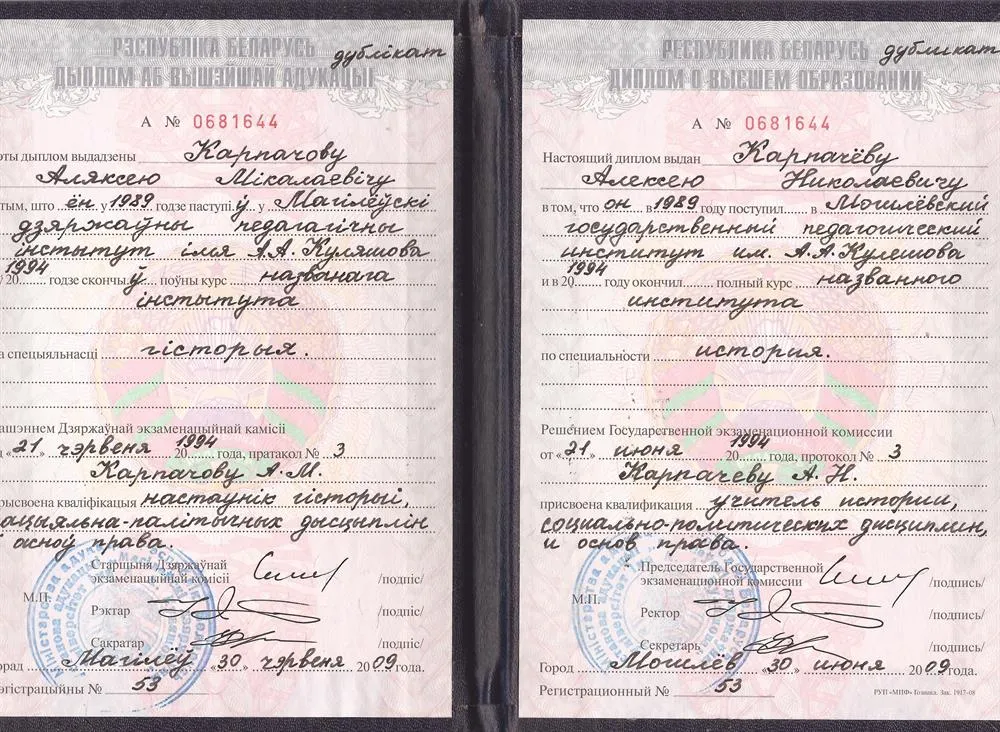 РЭСПУБЛІКА БЕЛАРУСЬ
дублікат
ДЫПЛОМ АБ ВЫШЭЙШАЙ АДУКАЦЫІ
А № 0681644
эты дыплом выдадзены Карпачову
Аляксею Мікалаевічу
тым, што ён у 1989 годзе паступіў у Магілёўскі
дзяржаўны педагагічны
інстытут імя А.А.Куляшова
1994
ў 20 годзе скончыў поўны курс названага
інстытута
а спецыяльнасці гісторыя.
ашэннем Дзяржаўнай экзаменацыйнай камісіі
д «21» чэрвеня 1994 20 года, пратакол № 3
Карпачову А.М.
рысвоена кваліфікацыя настаўнік гісторыі,
ацыяльна-палітычных дысцыплін
і асноў права.
Старшыня Дзяржаўнай
экзаменацыйнай камісіі /подпіс/
М.П.
Рэктар /подпіс/
Сакратар /подпіс/
орад Магілёў «30» чэрвеня 2009 года.
эгістрацыйны № 53
РЕСПУБЛИКА БЕЛАРУСЬ
дубликат
ДИПЛОМ О ВЫСШЕМ ОБРАЗОВАНИИ
А № 0681644
Настоящий диплом выдан Карпачёву
Алексею Николаевичу
в том, что он в 1989 году поступил в Могилёвский
государственный педагогический
институт им. А.А.Кулешова
1994
и в 20 году окончил полный курс названного
института
по специальности история.
Решением Государственной экзаменационной комиссии
от «21» июня 1994 20 года, протокол № 3
Карпачеву А.Н.
присвоена квалификация учитель истории,
социально-политических дисциплин,
и основ права.
Председатель Государственной
экзаменационной комиссии /подпись/
М.П.
Ректор /подпись/
Секретарь /подпись/
Город Могилёв «30» июня 2009 года.
Регистрационный № 53
РУП «МПФ» Гознака. Зак. 1917-08